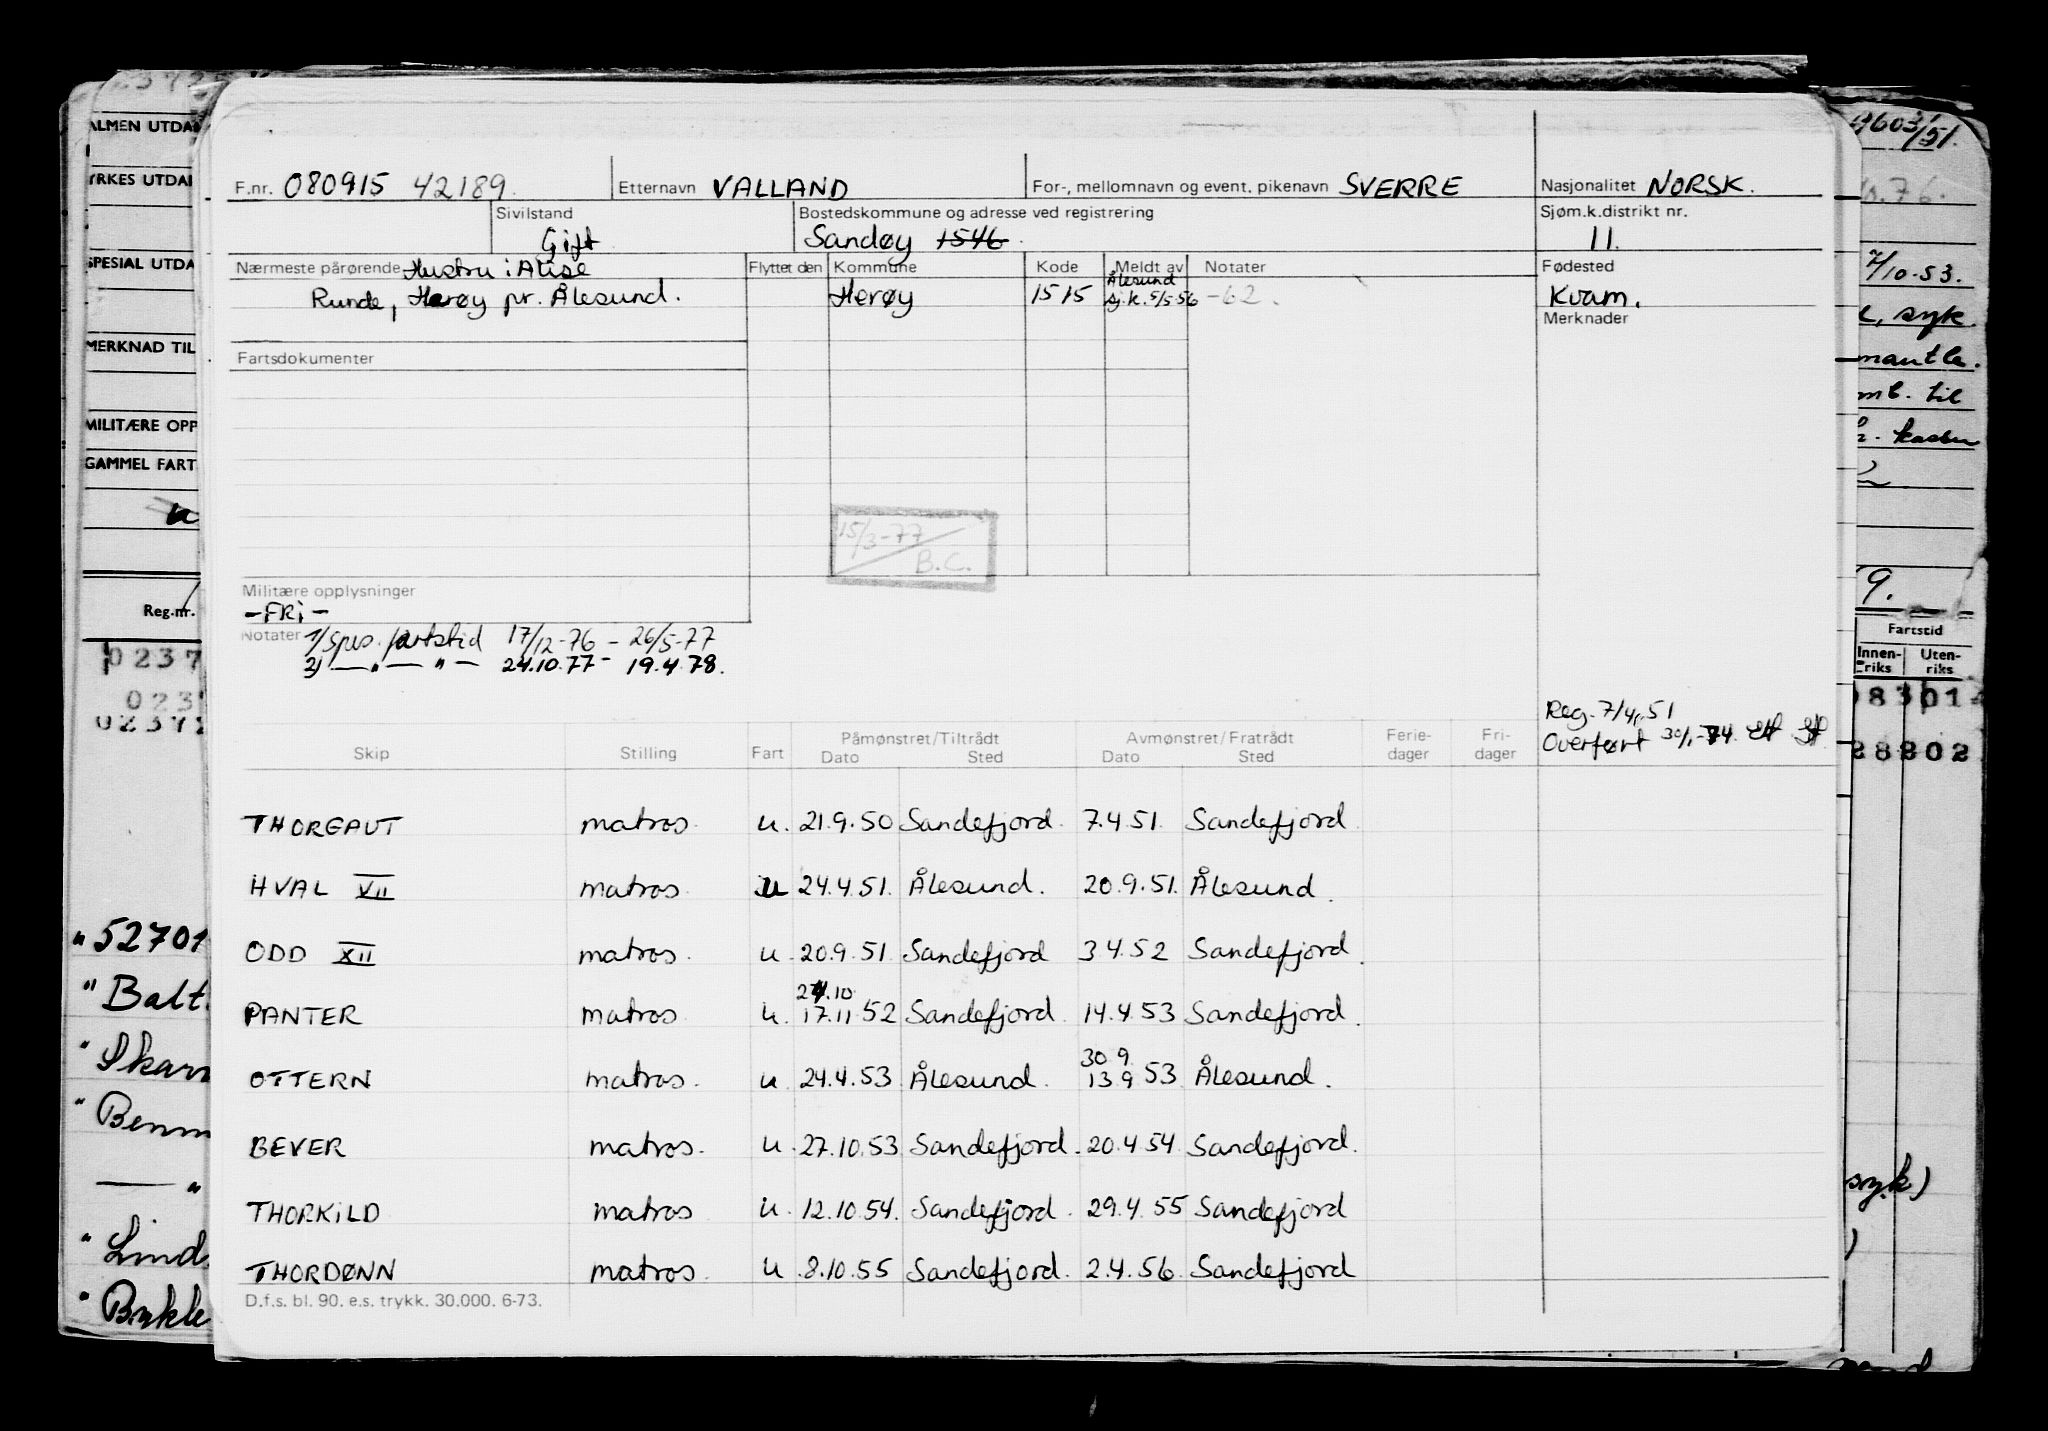 F.nr. 080915 42189. Etternavn VALLAND For-, mellomnavn og event. pikenavn SVERRE Nasjonalitet NORSK.
Sivilstand Bostedskommune og adresse ved registrering Sjøm.k.distrikt nr.
Gift Sandøy 1546 11.
Nærmeste pårørende Hustru: Alise Flyttet den Kommune Kode Meldt av Notater Fødested
Runde, Herøy pr. Ålesund. Herøy 1515 Ålesund sj.k. 5/5-56 -62. Kvam.
Merknader
Fartsdokumenter
15/3-77
B.C.
Militære opplysninger
-FRi-
Notater 1/ Spes. fartstid 17/12-76 - 26/5-77
2) — " — " — 24.10.77 - 19.4.78.
Reg. 7/4, 51
Overført 30/1-74.
Skip Stilling Fart Påmønstret/Tiltrådt Avmønstret/Fratrådt Ferie- Fri-
Dato Sted Dato Sted dager dager
THORGAUT matros. u. 21.9.50 Sandefjord. 7.4.51. Sandefjord.
HVAL VII matros. u 24.4.51. Ålesund. 20.9.51. Ålesund.
ODD XII matros. u. 20.9.51. Sandefjord 3.4.52 Sandefjord.
24.10
PANTER matros. u. 17.11.52 Sandefjord. 14.4.53 Sandefjord.
30 9.
OTTERN matros. u. 24.4.53 Ålesund. 13 9 53 Ålesund.
BEVER matros. u. 27.10.53 Sandefjord. 20.4.54. Sandefjord.
THORKILD matros u. 12.10.54. Sandefjord. 29.4.55 Sandefjord
THORDØNN matros. u. 8.10.55 Sandefjord. 2.4.56. Sandefjord
D.f.s. bl. 90. e.s. trykk. 30.000. 6-73.
ALMEN UTDA
YRKES UTDA
SPESIAL UTDA
MERKNAD TIL
MILITÆRE OPP
GAMMEL FART
u
Reg.nr.
0237
023
02372
" 52701
" Balt.
" Skar
" Benn
— "
" Lind
" Bykle
603/51.
.76.
7/10-53.
, syk.
mantle.
mb. til
9.
Fartstid
Innen- Uten-
riks riks
83014
28802
syk)
)